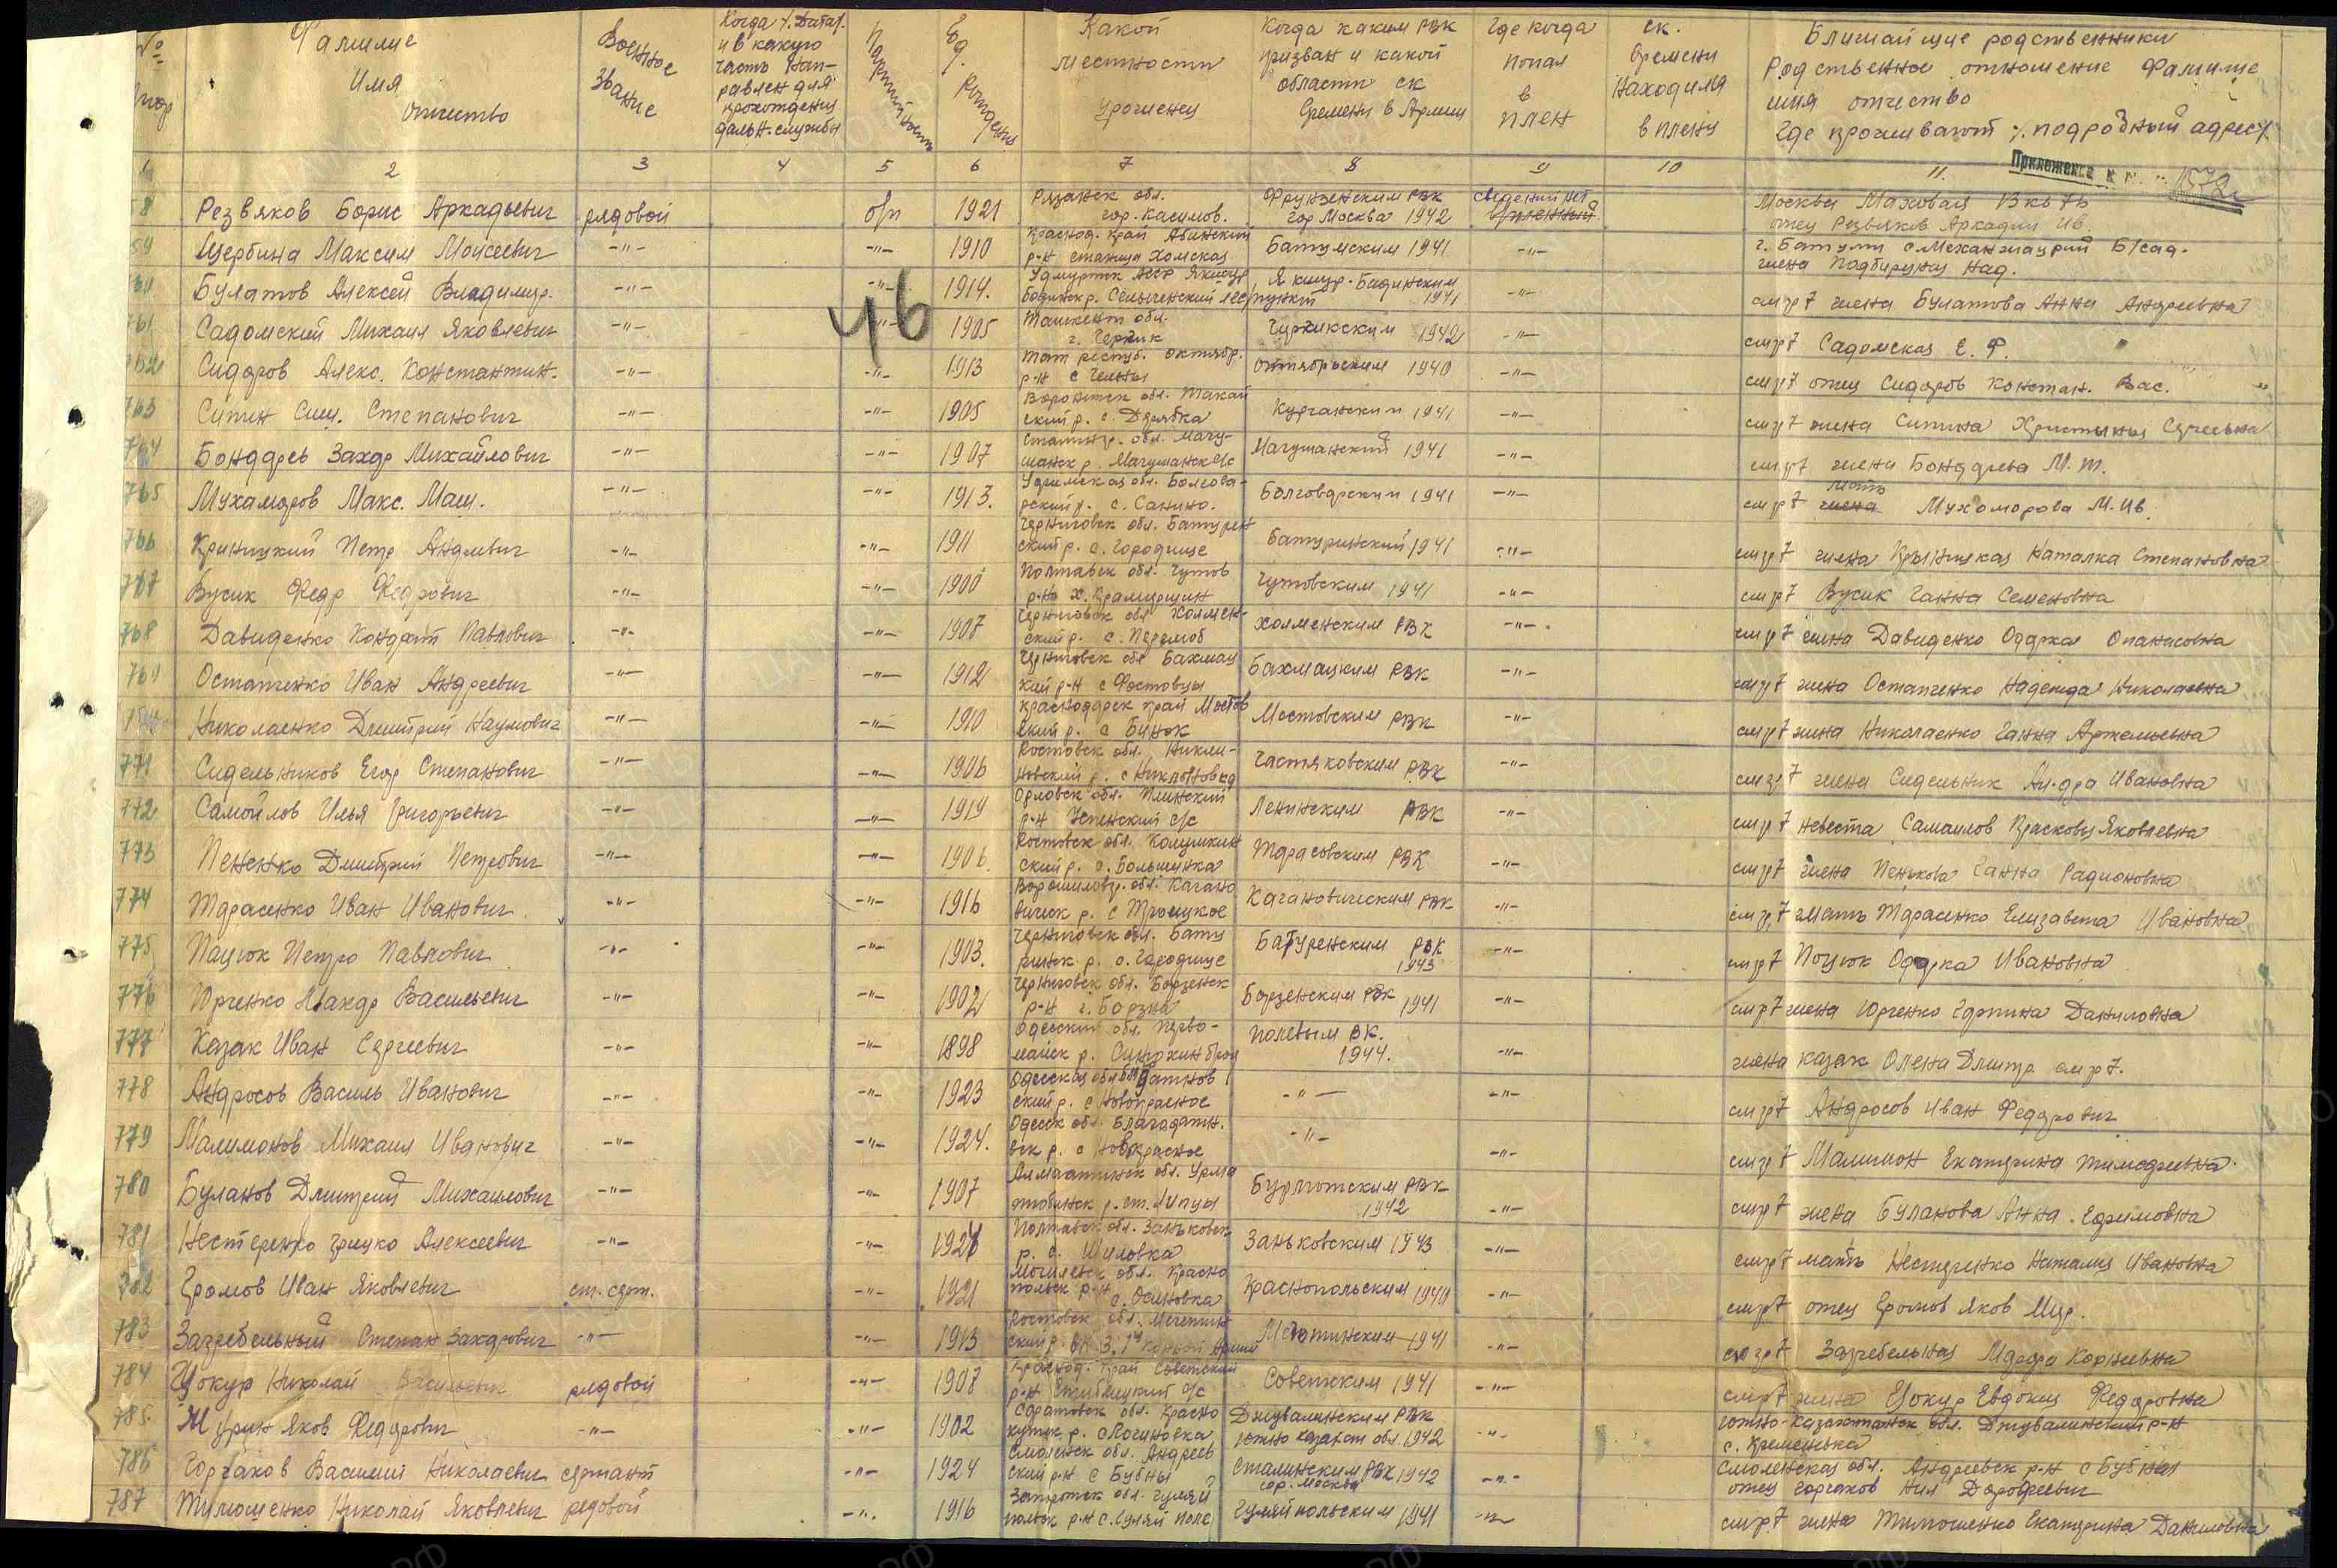 № Фамилие Имя Отчество Военное звание Когда /. Дата /. и в какую часть нап- равлен для прохождения дальн. службы Партийность Год рождения Какой местности уроженец Когда каким РВК призван и какой области ск времени в Армии Где когда попал в плен ск. времени находился в плену Ближайшие родственники Родственное отношение Фамилие имя отчество Где проживают /. подробный адрес /.
2 3 4 5 6 7 8 9 10 11.
Приложение к
46
58 Резвяков Борис Аркадьевич рядовой б/п 1921 Рязанск обл. гор. Касимов. Фрунзенским РВК гор Москва 1942 сведений нет Москва Маховая 13 кв 7б отец Резвяков Аркадий Ив.
59 Щербина Максим Моисеевич -"- -"- 1910 Краснод. край Абинский р-н станица Холмская Батумским 1941 -"- г. Батуми с Механжаурий жена Над.
Булатов Алексей Владимир. -"- -"- 1914. Удмуртск АССР Якшур Бодинск р. Якшур-Бодинским 1941 -"- см р 7 жена Булатова Анна Андреевна
761 Садомский Михаил Яковлевич -"- -"- 1905 Ташкент обл. г. Черчик Чирчикским 1942 -"- см р 7 Садомская Е. Ф.
762 Сидоров Алекс. Константин. -"- -"- 1913 Тат респуб. Октябр. р-н с Октябрьским 1940 -"- см р 7 отец Сидоров Констан. Вас.
763 Ситин Сем. Степанович -"- -"- 1905 Воронежск обл. Токай ский р. с. Курганским 1941 -"- см р 7 жена Ситина Христинья Сергеевна
764 Бондарев Захар Михайлович -"- -"- 1907 обл. Мачу- шанск р. Мачушанск с/с Мачушанский 1941 -"- см р 7 жена Бондарева М. Т.
765 Мухаморов Макс. Маш. -"- -"- 1913. обл. Болгова- рский р. с. Санино. Болговарским 1941 -"- см р 7 мать Мухоморова М. Ив.
766 Криницкий Петр Андреевич -"- -"- 1911 Черниговск обл. Батурен ский р. с. Городище Батуринский 1941 -"- см р 7 жена Крыницкая Наталка Степановна
767 Вусик Федр Федрович -"- -"- 1900 Полтавск обл. Чутов р-на х. Чутовским 1941 -"- см р 7 Вусик Ганна Семеновна
768 Давиденко Кондрат Павлович -"- -"- 1907 Черниговск обл Холмен- ский р. с. Перемоб Холменским РВК -"- см р 7 жена Давиденко Одарка Опанасовна
769 Остапченко Иван Андреевич -"- -"- 1912 Черниговск обл Бахмац кий р-н с Фастовцы Бахмацким РВК -"- см р 7 жена Остапченко Надежда Николаевна
Николаенко Дмитрий Наумович -"- -"- 1910 Краснодарск край Мостов ский р. с Бинок Мостовским РВК -"- см р 7 жена Николаенко Ганна Артемьевна
771 Сидельников Егор Степанович -"- -"- 1906 Ростовск обл. Никли- новский р. с Никлиновка Частяковским РВК -"- см р 7 жена Сидельник Ал-дра Ивановна
772 Самойлов Илья Григорьевич -"- -"- 1919 Орловск обл. р-н Успенский с/с Ленинским РВК -"- см р 7 невеста Самаилов Прасковья Яковлевна
773 Пененко Дмитрий Петрович -"- -"- 1906. Ростовск обл. ский р. с. Большинка Тарасовским РВК -"- см р 7 жена Пенькова Ганна Радионовна
774 Тарасенко Иван Иванович -"- -"- 1916 Ворошиловгр. обл. Кагано вическ р. с Троицкое Кагановическим РВК -"- см р 7 мать Тарасенко Елизавета Ивановна
775 Пацюк Петро Павлович -"- -"- 1903. Черниговск обл. Бату ринск р. с. Городище Батуренским РВК 1943 -"- см р 7 Поцюк Одарка Ивановна
776 Юрченко Ликандр Васильевич -"- -"- 1902 Черниговск обл. Борзенск р-н г. Борзна Борзенским РВК 1941 -"- см р 7 жена Юрченко Гарпина Даниловна
777 Казак Иван Сергеевич -"- -"- 1898 Одесский обл. Перво- майск р. Полевым ВК. 1944. -"- жена Казак Олена Дмитр см р 7.
778 Андросов Василь Иванович -"- -"- 1923 Одесская обл Благодатнов ский р. с Новокрасное -"- -"- см р 7 Андросов Иван Федорович
779 Малимонов Михаил Иванович -"- -"- 1924. Одесск обл. Благадатн. вск р. с Новокрасное -"- -"- см р 7 Малимон Екатерина Тимофеевна.
780 Буланов Дмитрий Михаилович -"- -"- 1907 Алмаатинск обл. 1942 -"- см р 7 жена Буланова Анна. Ефимовна
781 Нестеренко Грицко Алексеевич -"- -"- 1924 Полтавск обл. Заньковск р. с. Шиловка Заньковским 1943 -"- см р 7 мать Нестеренко Наталия Ивановна
782 Громов Иван Яковлевич ст. серж. -"- 1921 Могилевск обл. Красно польск р-н с. Осиновка Краснопольским 1940 -"- см р 7 отец Громов Яков Мир.
783 Загребельный Степан Захарович -"- -"- 1913 Ростовск обл. Мечетин ский р. Мечетинским 1941 -"- см р 7 Загребельная Марфа Корнеевна
784 Цокур Николай Васильевич рядовой -"- 1907 Краснод. край Советский р-н с/с Советским 1941 -"- см р 7 жена Цокур Евдокия Федоровна
785. Журин Яков Федорович -"- -"- 1902 Саратовск обл. Красно кутск р. с Логиновка Джувалинским РВК южно казахст обл 1942 -"- южно-казахстанск обл. Джувалинский р-н с. Кременевка
786 Горчаков Василий Николаевич сержант -"- 1924 Смоленск обл. Андреев ский р-н с Бубны Сталинским РВК 1942 гор. Москва -"- Смоленская обл. Андреевск р-н с Бубная отец Горчаков Нил Дорофеевич
787 Тимошенко Николай Яковлевич рядовой -"- 1916 Запорожск обл. Гуляй польск р-н с. Гуляй поле Гуляйпольским 1941 -"- см р 7 жена Тимошенко Екатерина Даниловна